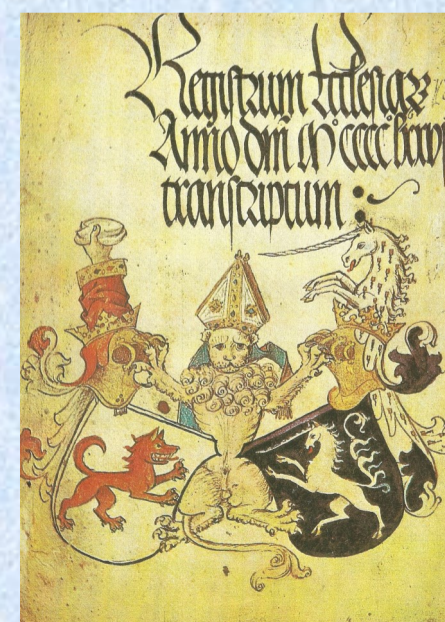 Registrum Ecclesiar
Anno dm̄ M° CCCC
transcriptum :